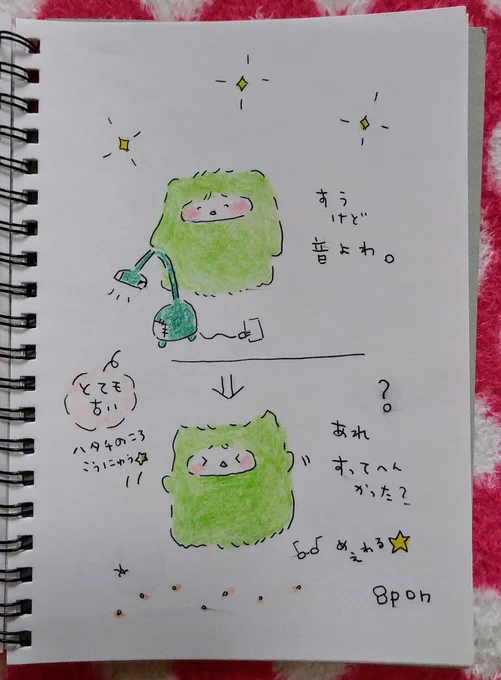 すう
けど
音よわ。
とても
古い
ハタチのころ
こうにゅう
?
あれ
すってへん
かった?
めぇれる
8pon